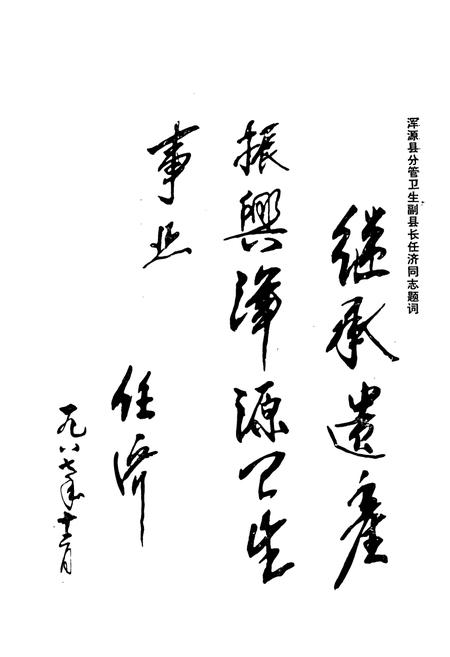 浑源县分管卫生副县长任济同志题词
继承遗產
振興浑源卫生
事业
任济
一九八七年十二月